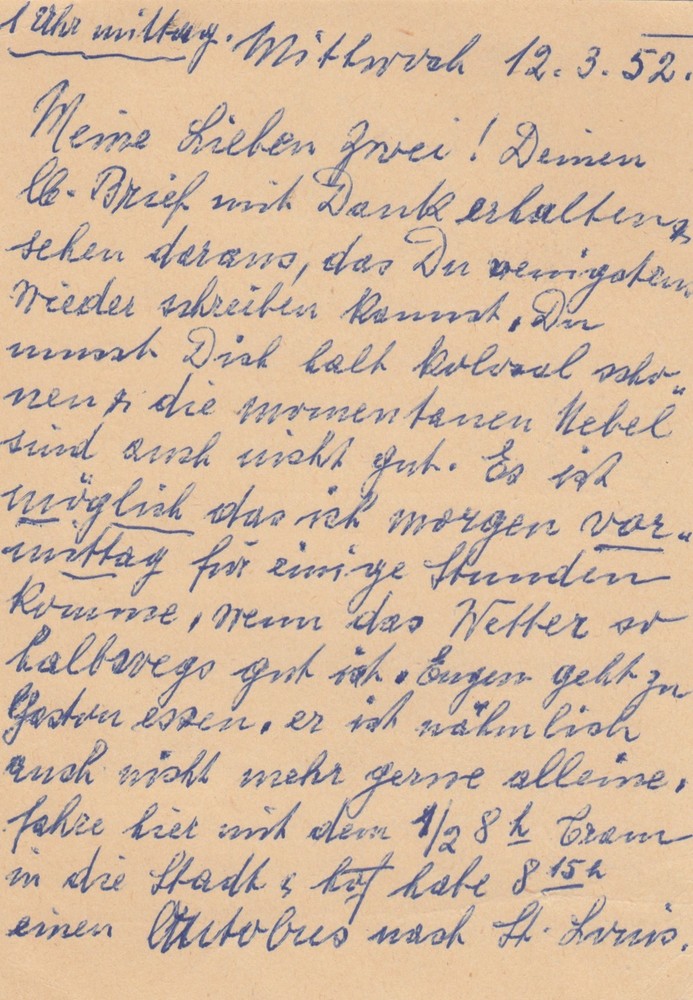 1 Uhr mittag. Mittwoch 12.3.52.
Meine Lieben zwei! Deinen
lb. Brief mit Dank erhalten &
sehen daraus, das Du wenigstens
wieder schreiben kannst. Du
musst Dich halt kolosal scho-
nen & die momentanen Nebel
sind auch nicht gut. Es ist
möglich das ich morgen vor-
mittag für einige Stunden
komme, wenn das Wetter so
halbwegs gut ist. Eugen geht zu
Gaston essen, er ist nähmlich
auch nicht mehr gerne alleine.
fahre hier mit dem 1/2 8 h Tram
in die Stadt & habe 8 15 h
einen Autobus nach St. Louis.